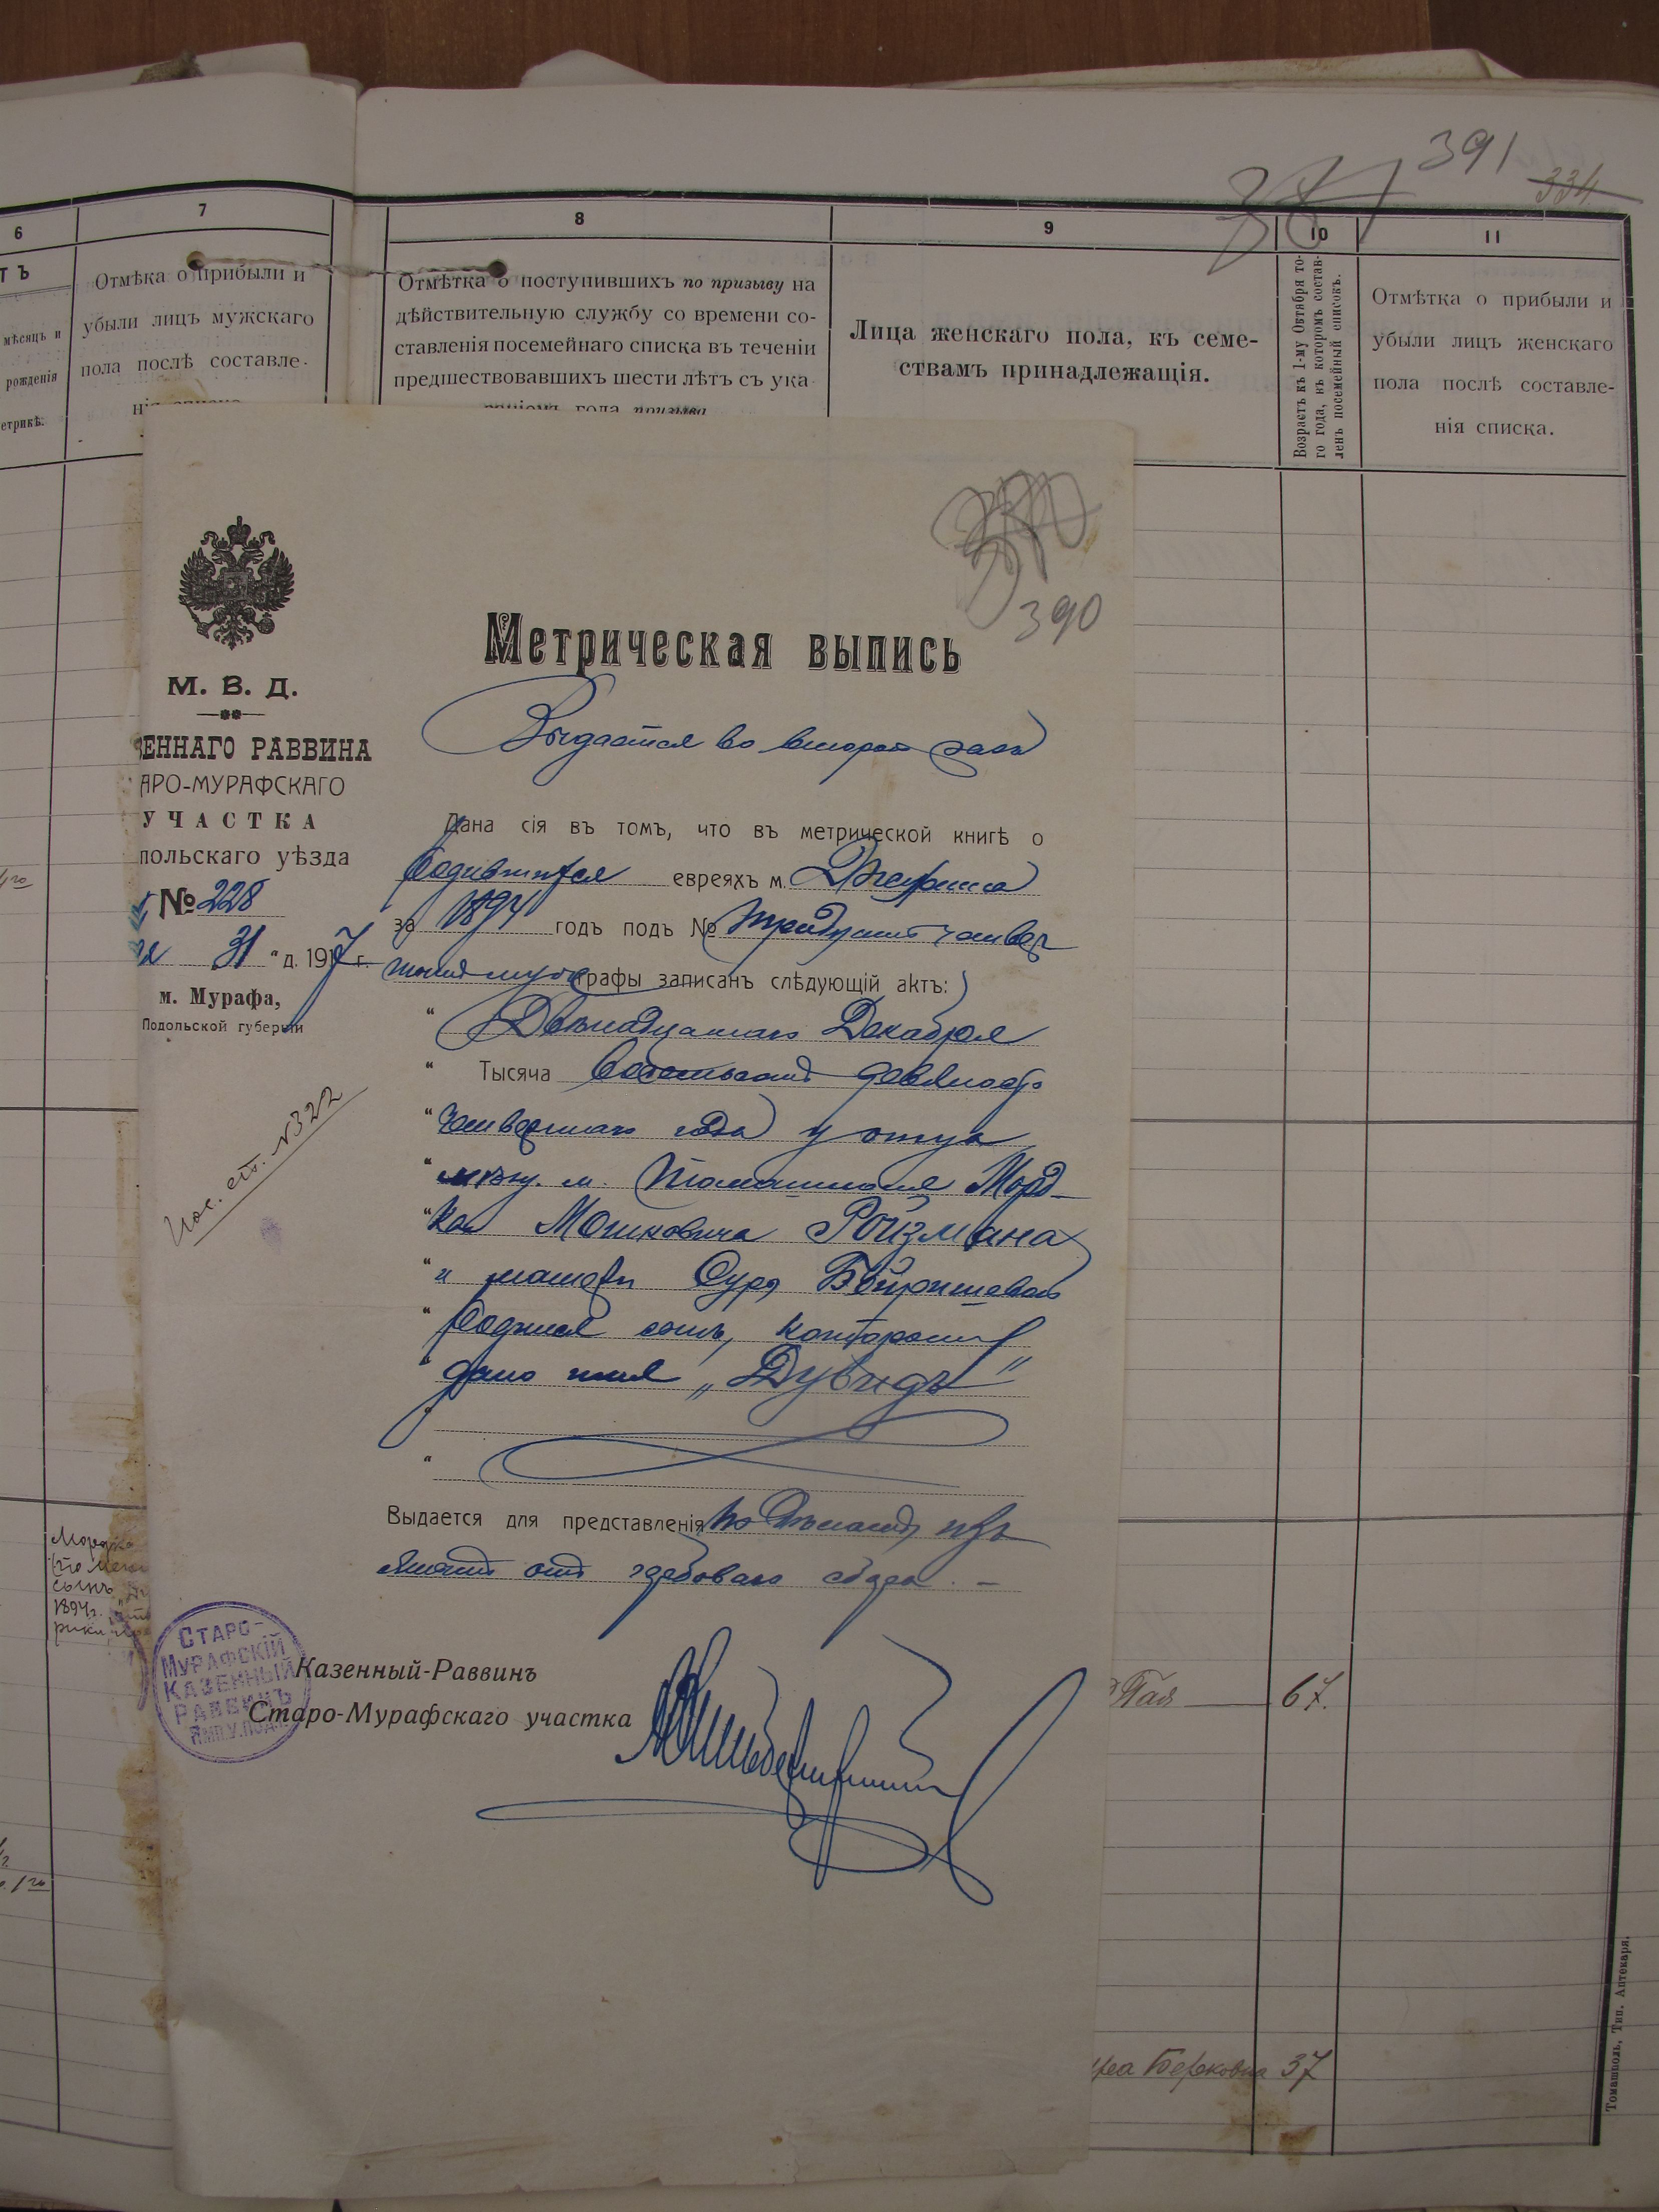 391
334
6
7
8
9
10
11
ТЪ
мѣсяцъ и
рожденія
етрикѣ.
Отмѣка о прибыли и
убыли лицъ мужскаго
пола послѣ составле-
Отмѣтка о поступившихъ по призыву на
дѣйствительную службу со времени со-
ставленія посемейнаго списка въ теченіи
предшествовавшихъ шести лѣтъ съ ука
года призыва
Лица женскаго пола, къ семе-
ствамъ принадлежащія.
Возрастъ къ 1-му Октября то-
го года, къ которомъ состав-
ленъ посемейный списокъ.
Отмѣтка о прибыли и
убыли лицъ женскаго
пола послѣ составле-
нія списка.
390
М. В. Д.
ЕННАГО РАВВИНА
АРО-МУРАФСКАГО
УЧАСТКА
польскаго уѣзда
№ 228
31 " д. 1917 г.
м. Мурафа,
Подольской губерніи
Пос. сп. №322
Метрическая выпись
Выдается во второй разъ
Дана сія въ томъ, что въ метрической книгѣ о
родившихся евреяхъ м. Джурина
за 1894 годъ подъ № тридцать четвер
тымъ муж графы записанъ слѣдующій актъ:
" Двѣнадцатаго Декабря
" Тысяча восемьсотъ девяносто
" четвертаго года у отца
" мѣщ. м. Томашполя Морд-
" ка Мошковича Ройзмана
" и матери Суры Беришевой
" родился сынъ, которому
" дано имя „Дувидъ"
"
"
Выдается для представленія по
сбора. —
Казенный-Раввинъ
Старо-Мурафскаго участка
СТАРО-
МУРАФСКІЙ
КАЗЕННЫЙ
РАВВИНЪ
ЯМП.У.ПОД.Г.
Мордко
сынъ
1894г.
67.
Берковна 37
Томашполь, Тип. Аптекаря.